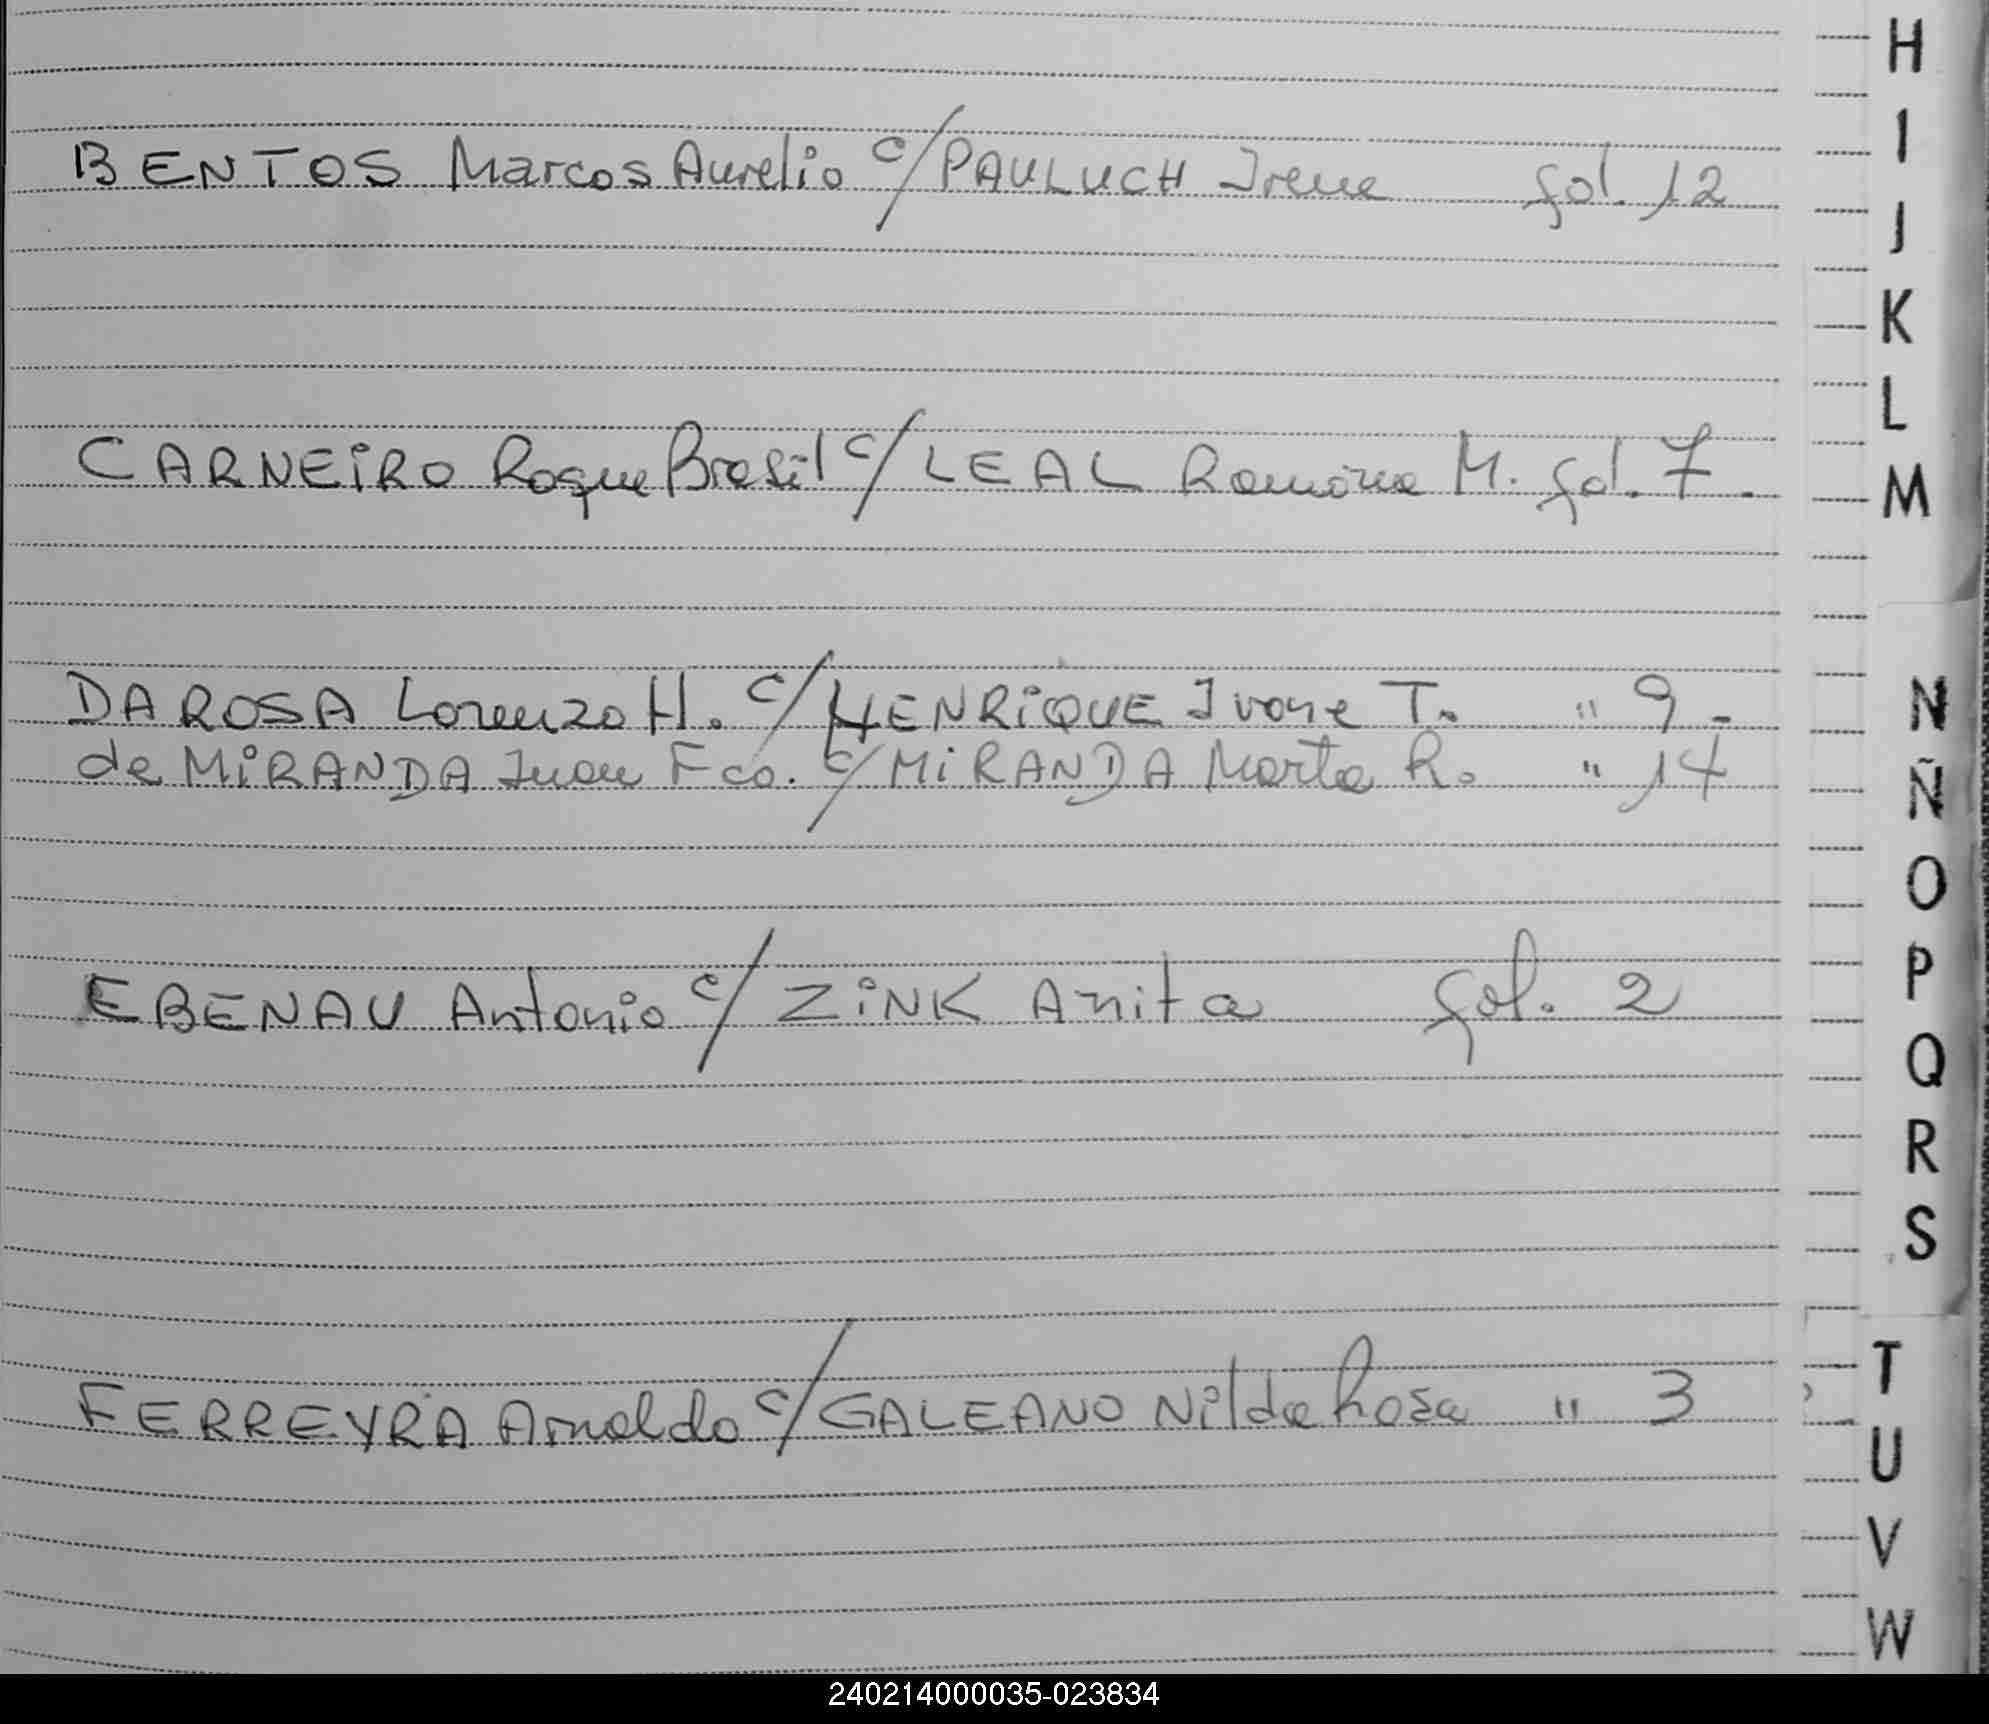 BENTOS Marcos Aurelio c/ PAULUCH Irene fol. 12
CARNEIRO Roque Brasil c/ LEAL Ramona M. fol. 7.
DA ROSA Lorenzo H. c/ HENRIQUE Ivone T. " 9 -
de MIRANDA Juan Fco. c/ MIRANDA Marta R. " 14
EBENAU Antonio c/ ZINK Anita fol. 2
FERREYRA Arnoldo c/ GALEANO Nilda Rosa " 3
H
I
J
K
L
M
N
Ñ
O
P
Q
R
S
T
U
V
W
240214000035-023834